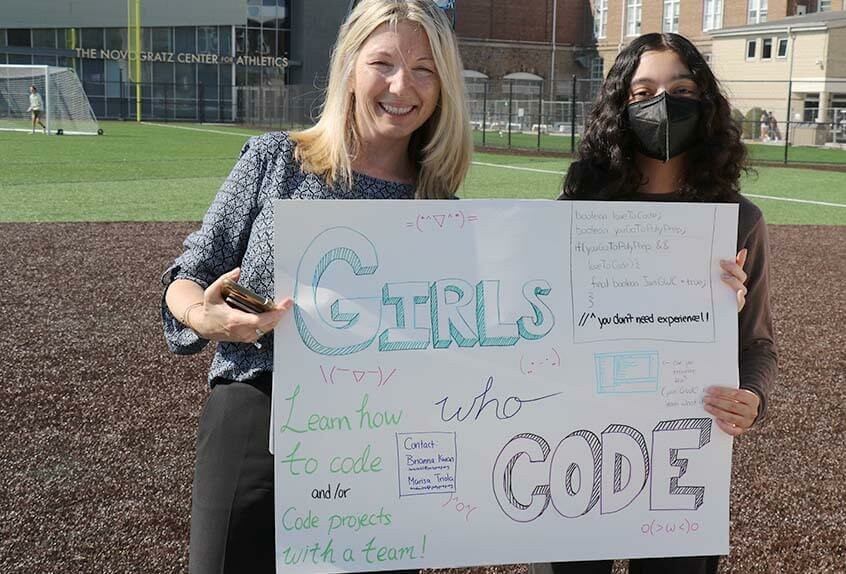 THE NOVOGRATZ CENTER FOR ATHLETICS
=(^▽^)=
GIRLS
boolean loveToCode;
boolean youGoToPolyPrep;
if(youGoToPolyPrep &&
loveToCode){
final boolean JoinGWC = true;
}
//^ you don't need experience!!
\(ー▽ー)/
Learn how
to code
and/or
Code projects
with a team!
who
Contact
Brianna Kwan
Marisa Triola
CODE
O(>ω<)O